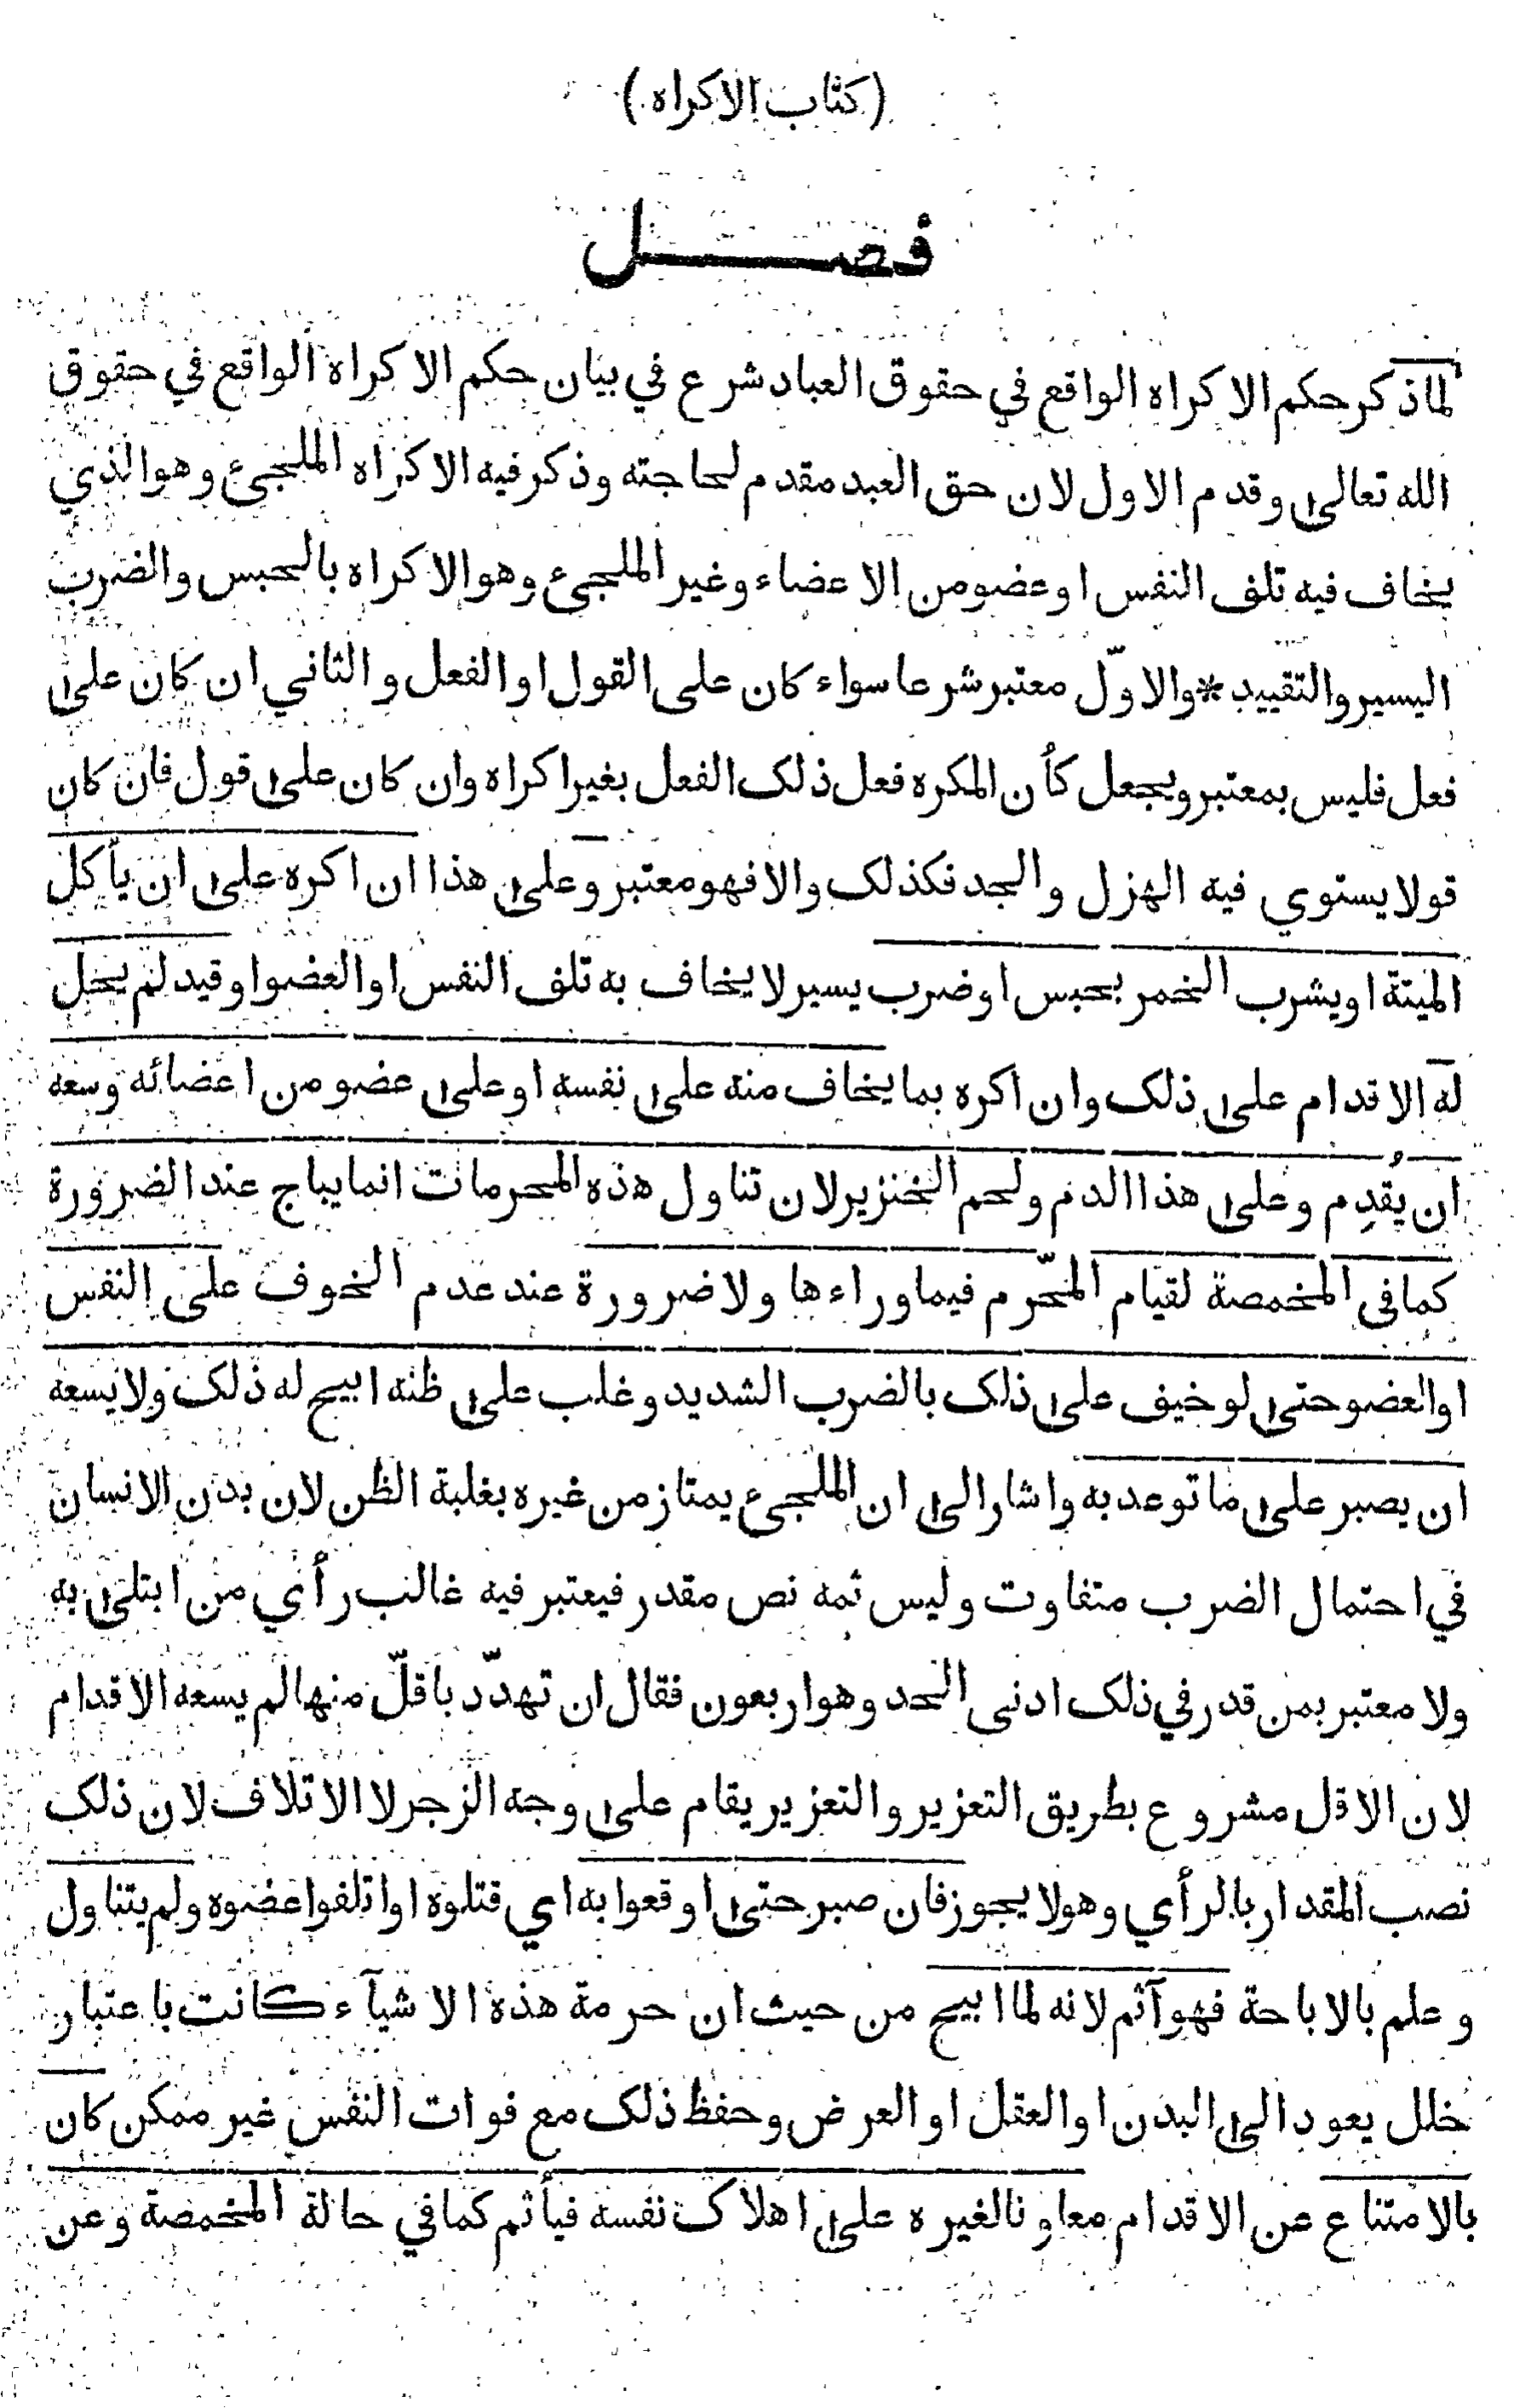 (كتاب الاكراه)
فصل
لما ذكر حكم الاكراه الواقع في حقوق العباد شرع في بيان حكم الاكراه الواقع في حقوق
الله تعالى وقدم الاول لان حق العبد مقدم لحاجته وذكر فيه الاكراه الملجىء وهو الذي
يخاف فيه تلف النفس او عضو من الاعضاء وغير الملجىء وهو الاكراه بالحبس والضرب
اليسير والتقييد * والاوّل معتبر شرعا سواء كان على القول او الفعل والثاني ان كان على
فعل فليس بمعتبر ويجعل كأن المكره فعل ذلك الفعل بغير اكراه وان كان على قول فان كان
قولا يستوي فيه الهزل والجد فكذلك والا فهو معتبر وعلى هذا ان اكره على ان يأكل
الميتة او يشرب الخمر بحبس او ضرب يسير لا يخاف به تلف النفس او العضو او قيد لم يحل
له الاقدام على ذلك وان اكره بما يخاف منه على نفسه او على عضو من اعضائه وسعه
ان يُقدِم وعلى هذا الدم ولحم الخنزير لان تناول هذه المحرمات انما يباح عند الضرورة
كما في المخمصة لقيام المحّرم فيما وراءها ولا ضرورة عند عدم الخوف على النفس
او العضو حتى لو خيف على ذلك بالضرب الشديد وغلب على ظنه ابيح له ذلك ولا يسعه
ان يصبر على ما توعد به واشار الى ان الملجىء يمتاز من غيره بغلبة الظن لان بدن الانسان
في احتمال الضرب متفاوت وليس ثمه نص مقدر فيعتبر فيه غالب رأي من ابتلى به
ولا معتبر بمن قدر في ذلك ادنى الحد وهو اربعون فقال ان تهدّد باقلّ منها لم يسعه الاقدام
لان الاقل مشروع بطريق التعزير والتعزير يقام على وجه الزجر لا الاتلاف لان ذلك
نصب المقدار بالرأي وهو لا يجوز فان صبر حتى اوقعوا به اي قتلوه او اتلفوا عضوه ولم يتناول
وعلم بالاباحة فهو آثم لانه لما ابيح من حيث ان حرمة هذه الاشيآء كانت باعتبار
خلل يعود الى البدن او العقل او العرض وحفظ ذلك مع فوات النفس غير ممكن كان
بالامتناع عن الاقدام معاونا لغيره على اهلاك نفسه فيأثم كما في حالة المخمصة وعن